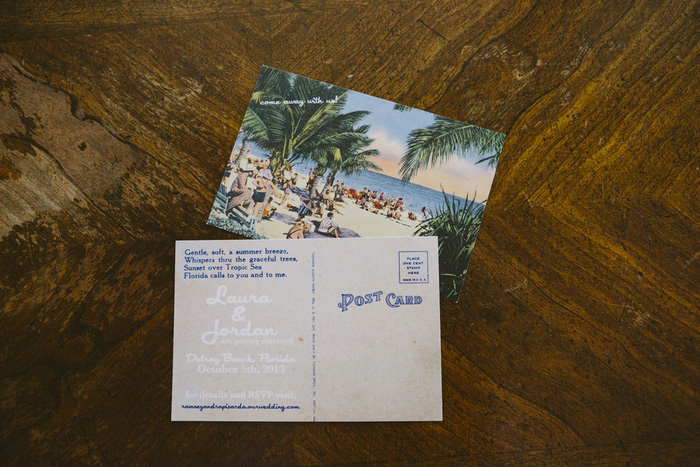 come away with us!
Gentle, soft, a summer breeze,
Whispers thru the graceful trees,
Sunset over Tropic Sea
Florida calls to you and to me.
Laura
&
Jordan
are getting married!
Delray Beach, Florida
October 5th, 2013
for details and RSVP visit:
ramseyandrapisarda.ourwedding.com
PLACE
ONE CENT
STAMP
HERE
MADE IN U.S.A.
POST CARD